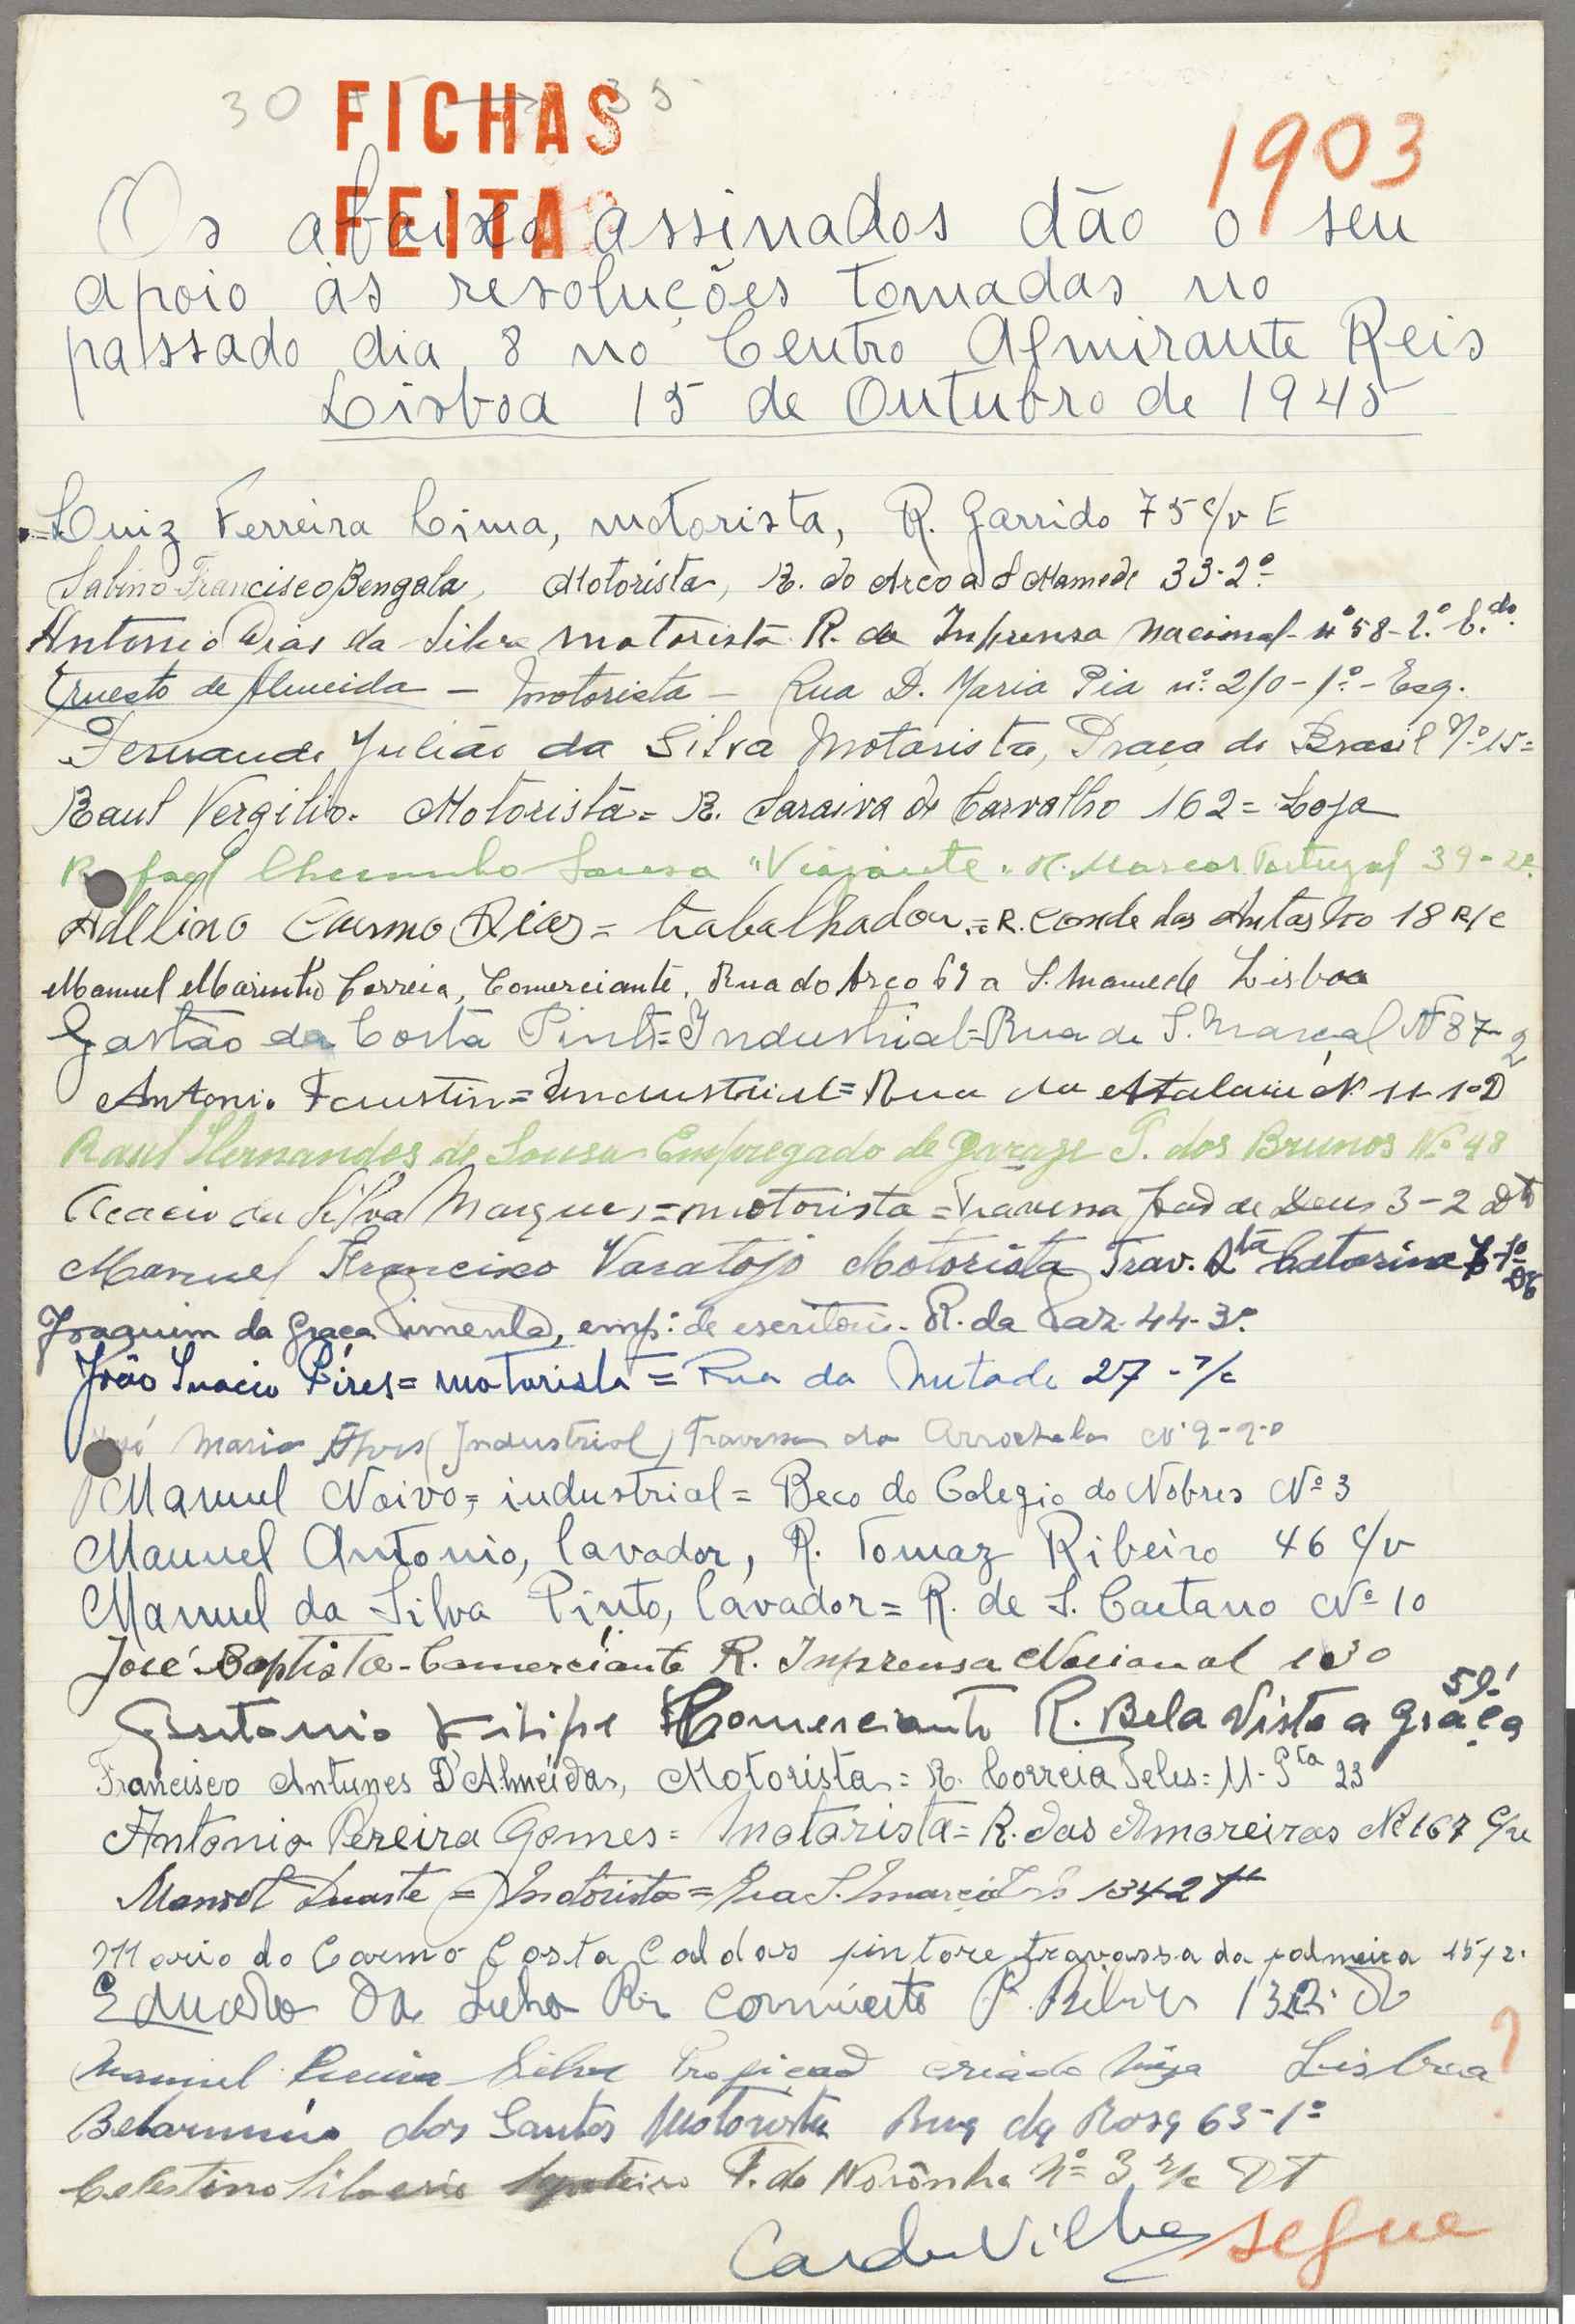 30
35
FICHAS
1903
FEITAS
Os abaixo assinados dão o seu
apoio às resoluções tomadas no
passado dia 8 no Centro Almirante Reis
Lisboa 15 de Outubro de 1945
=Luiz Ferreira Cima, motorista, R. Garrido 75 c/v E
Sabino Francisco Bengala, Motorista, R. do Arco a S Mamede 33-2º
Antonio Dias da Silva motorista R. da Imprensa Nacional nº 58-2.º E.do
Ernesto de Almeida - motorista - Rua D. Maria Pia nº 210-1º-Esq.
Fernando Julião da Silva Motorista, Praça do Brasil Nº 15=
Raul Vergilio. Motorista= R. Saraiva de Carvalho 162= Loja
Sousa "Viajante" R. Marcos Portugal 39-2º
Adelino Carmo Dias= trabalhador.=R. Conde das Antas No 18 R/c
Manuel Marinho Correia, Comerciante, Rua do Arco 61 a S. Mamede Lisboa
Gastão da Costa Pinto=Industrial=Rua de S. Marçal Nº 87-2
Antonio Faustin=Industrial=Rua da Atalaia Nº 11 1º D
Raul Hernandes de Sousa Empregado de garage T. dos Brunos Nº 48
Acacio da Silva Marques=motorista=Travessa João de Deus 3-2 Dto
Manuel Francisco Varatojo Motorista Trav. Sta Catarina 1º
Joaquim da Graça Pimenta, emp.º de escritorio. R. da Paz 44-3.º
João Inacio Pires=motorista= Rua da 27 - r/c
José Maria Alves (Industrial) Travessa da Arrochela Nº 9-
Manuel Noivo= industrial= Beco do Colegio do Nobres Nº 3
Manuel Antonio, lavador, R. Tomaz Ribeiro 46 c/v
Manuel da Silva Pinto, lavador= R. de S. Caetano Nº 10
José Baptista-Comerciante R. Imprensa Nacional 130
Antonio Filipe Comerciante R. Bela Vista a Graça 59-1
Francisco Antunes D'Almeida, Motorista= R. Correia Teles= 11- Pta 23
Antonio Pereira Gomes= Motorista= R. das Amoreiras Nº 167 c/v
Manoel Duarte = Motorista= Rua S. 134 2
Mario do Carmo Costa Caldas pintore travassa da palmeira 15, 2.
Eduardo Da 132
Manuel Silva criado Lisboa ?
Belarmino dos Santos Motorista Rua da Rosa 63-1º
Celestino Silverio T. do Norônha Nº 3 r/c DT
segue